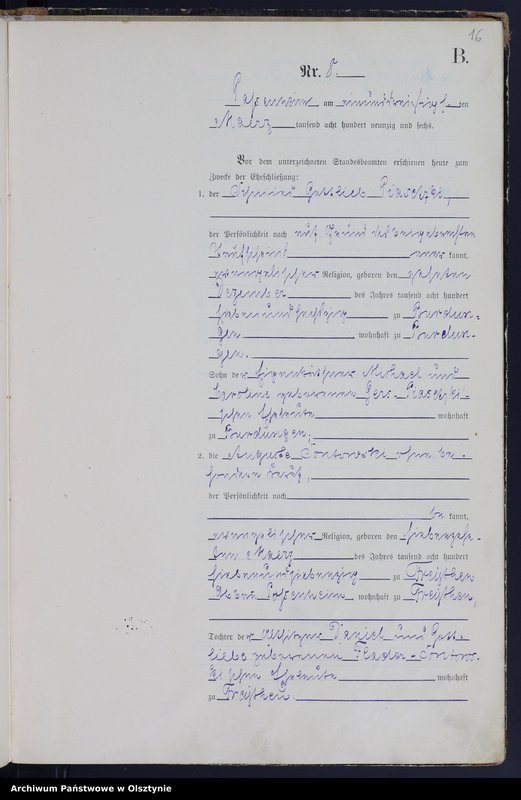 16
B.
Nr. 8.
Passenheim am einunddreißigsten
Maerz tausend acht hundert neunzig und sechs.
Vor dem unterzeichneten Standesbeamten erschienen heute zum
Zwecke der Eheschließung:
1. der Schmied Gottlieb
der Persönlichkeit nach auf Grund des beigebrachten
Taufscheins aner kannt,
evangelischer Religion, geboren den zehnten
Dezember des Jahres tausend acht hundert
siebenundsechzig zu Burdun=
gen, wohnhaft zu Burdun-
gen.
Sohn der Eigenkäthner Michael und
Caroline geborenen
schen Eheleute wohnhaft
zu Burdungen;
2. die Auguste ohne be-
sonderen Beruf,
der Persönlichkeit nach
be kannt,
evangelischer Religion, geboren den siebenzehn-
ten Maerz des Jahres tausend acht hundert
siebenundsiebenzig zu
Passenheim, wohnhaft zu
Tochter der Altsitzer Daniel und Gott-
liebe geborenen
schen Eheleute wohnhaft
zu
Archiwum Państwowe w Olsztynie